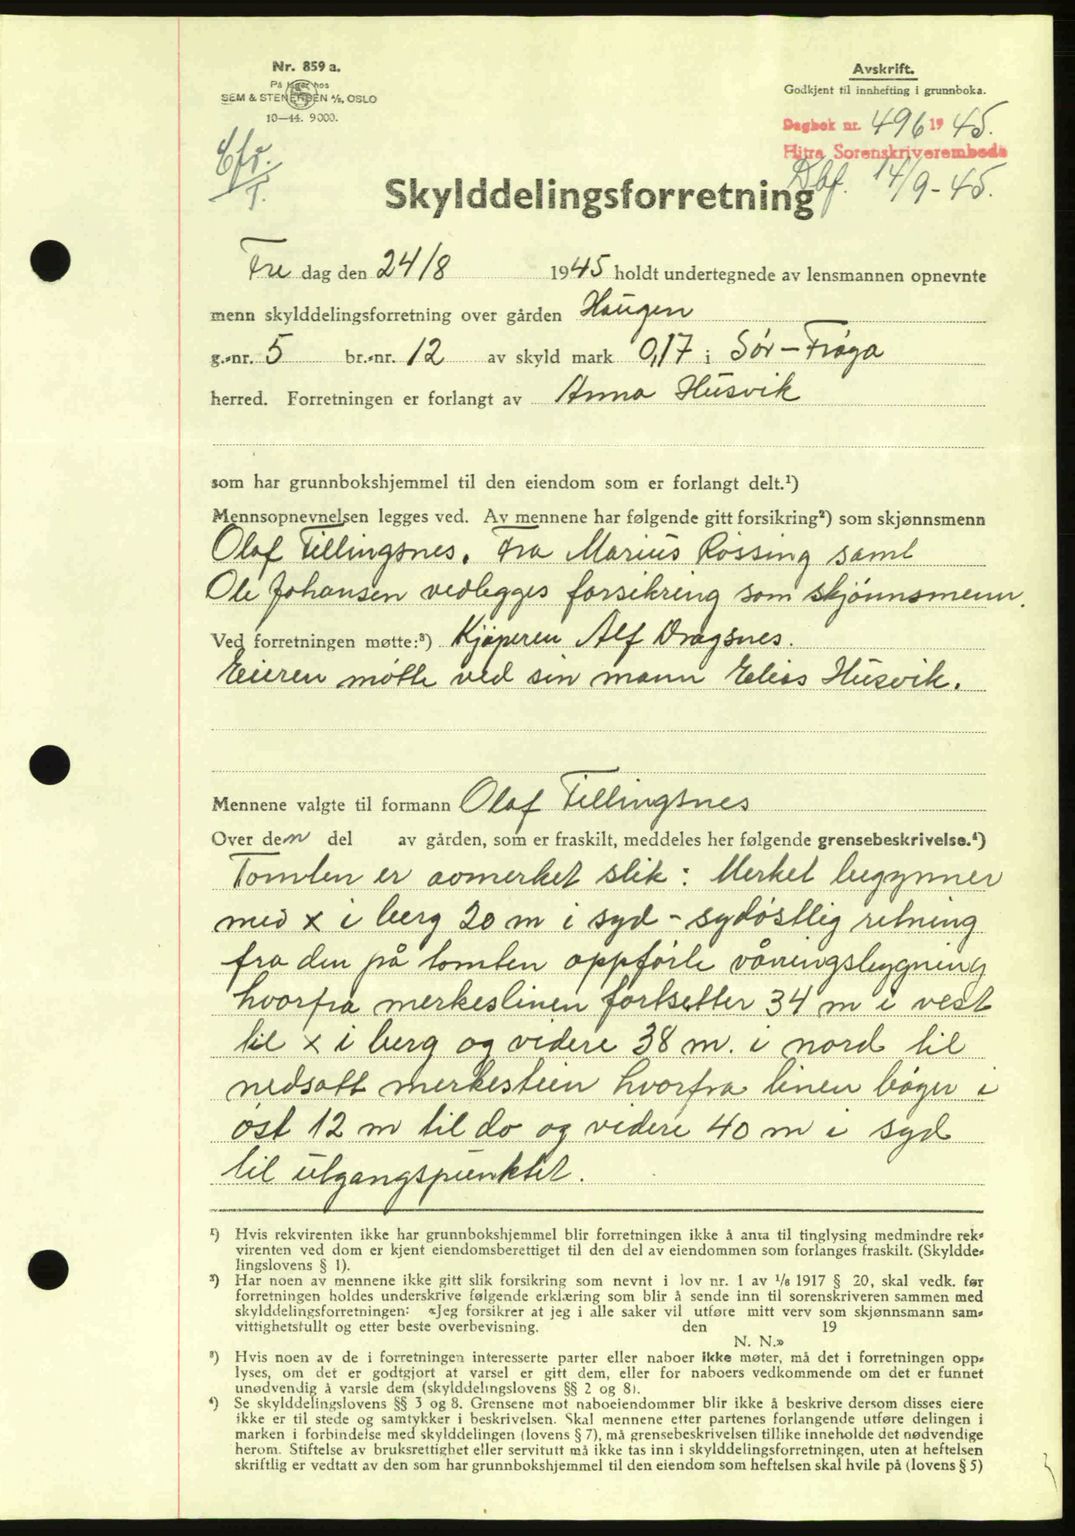 Nr. 859 a.
På lager hos
SEM & STENERSEN A/S, OSLO
10—44. 9000.
Avskrift.
Godkjent til innhefting i grunnboka.
Dagbok nr. 496 1945.
Hitra Sorenskriverembede
Dbf. 14/9-45.
Skylddelingsforretning
Fre dag den 24/8 1945 holdt undertegnede av lensmannen opnevnte
menn skylddelingsforretning over gården Haugen
g.-nr. 5 br.-nr. 12 av skyld mark 0,17 i Sør-Frøya
herred. Forretningen er forlangt av Anna Husvik
som har grunnbokshjemmel til den eiendom som er forlangt delt.¹)
Mennsopnevnelsen legges ved. Av mennene har følgende gitt forsikring²) som skjønnsmenn
Olaf Tellingsnes. Fra Marius Røssing samt
Ole Johansen vedlegges forsikring som skjønnsmenn.
Ved forretningen møtte:³) Kjøperen Alf Dragsnes.
Eieren møtte ved sin mann Elias Husvik.
Mennene valgte til formann Olaf Tellingsnes
Over den del av gården, som er fraskilt, meddeles her følgende grensebeskrivelse.⁴)
Tomten er avmerket slik: Merket begynner
med x i berg 20 m i syd-sydøstlig retning
fra den på tomten oppførte våningsbygning
hvorfra merkeslinen fortsetter 34 m i vest
til x i berg og videre 38 m. i nord til
nedsatt merkestein hvorfra linen bøyer i
øst 12 m til do og videre 40 m i syd
til utgangspunktet.
¹) Hvis rekvirenten ikke har grunnbokshjemmel blir forretningen ikke å anta til tinglysing medmindre rek-
virenten ved dom er kjent eiendomsberettiget til den del av eiendommen som forlanges fraskilt. (Skyldde-
lingslovens § 1).
²) Har noen av mennene ikke gitt slik forsikring som nevnt i lov nr. 1 av 1/6 1917 § 20, skal vedk. før
forretningen holdes underskrive følgende erklæring som blir å sende inn til sorenskriveren sammen med
skylddelingsforretningen: «Jeg forsikrer at jeg i alle saker vil utføre mitt verv som skjønnsmann sam-
vittighetsfullt og etter beste overbevisning. den 19
N. N.»
³) Hvis noen av de i forretningen interesserte parter eller naboer ikke møter, må det i forretningen opp-
lyses, om det er godtgjort at varsel er gitt dem, eller for naboers vedkommende om det er funnet
unødvendig å varsle dem (skylddelingslovens §§ 2 og 8).
⁴) Se skylddelingslovens §§ 3 og 8. Grensene mot naboeiendommer blir ikke å beskrive dersom disses eiere
ikke er til stede og samtykker i beskrivelsen. Skal mennene etter partenes forlangende utføre delingen i
marken i forbindelse med skylddelingen (lovens § 7), må grensebeskrivelsen tillike inneholde det nødvendige
herom. Stiftelse av bruksrettighet eller servitutt må ikke tas inn i skylddelingsforretningen, uten at heftelsen
skriftlig er vedtatt av den som har grunnbokshjemmel til den eiendom som heftelsen skal hvile på (lovens § 5)